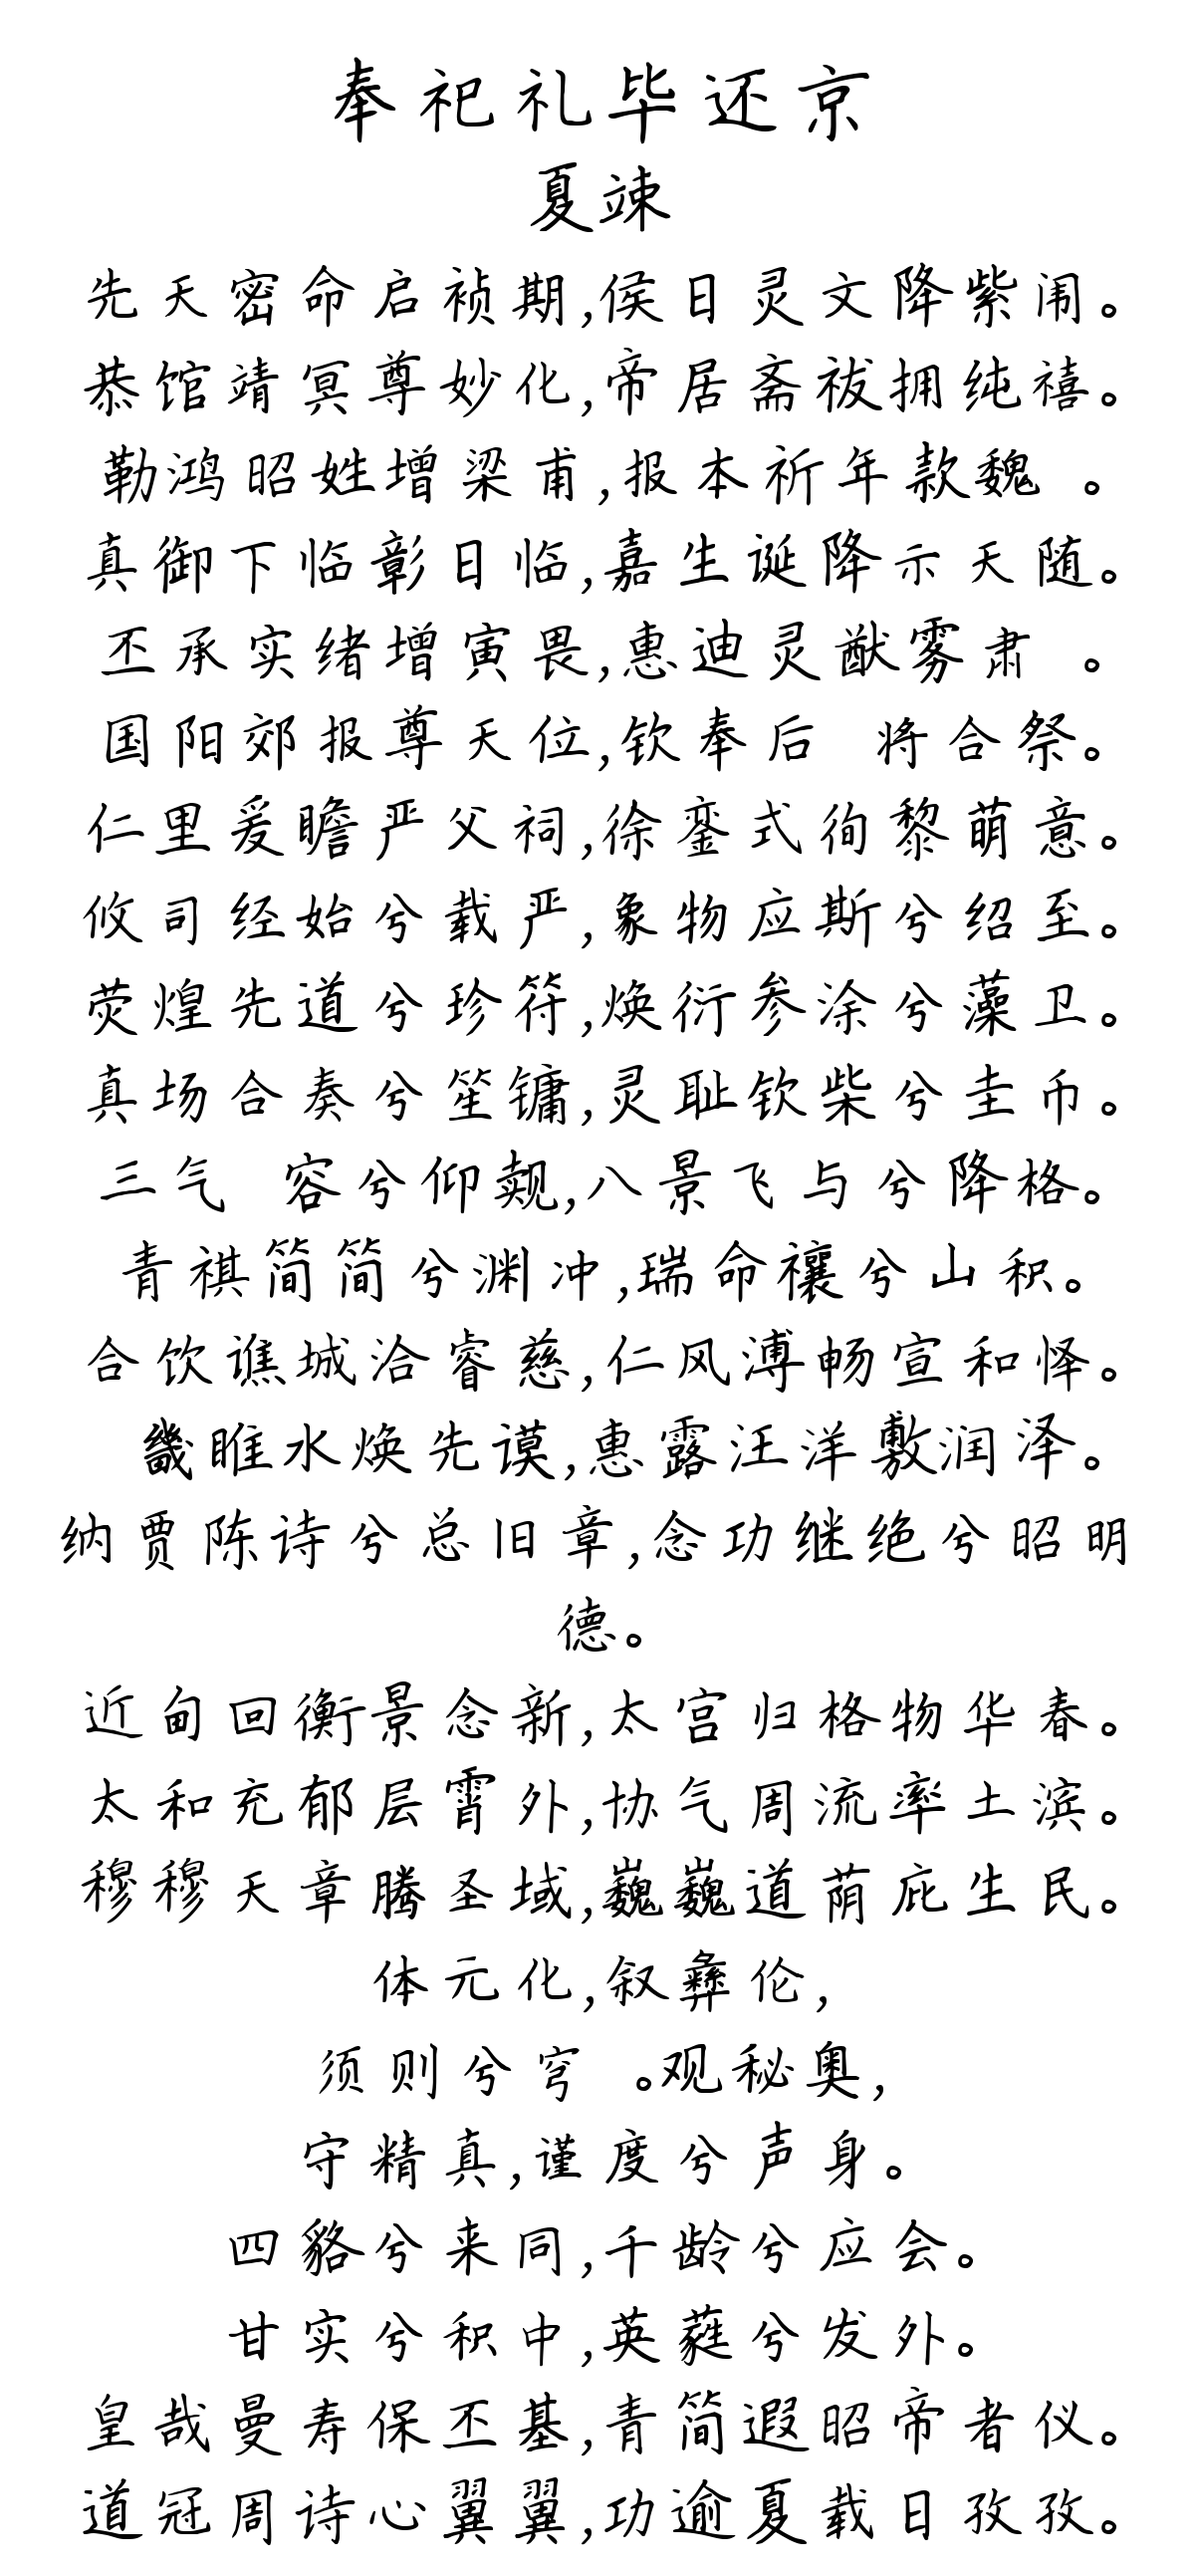 奉祀礼毕还京
夏竦
先天密命启祯期,侯日灵文降紫闱。
恭馆靖冥尊妙化,帝居斋祓拥纯禧。
勒鸿昭姓增梁甫,报本祈年款魏 。
真御下临彰日临,嘉生诞降示天随。
丕承实绪增寅畏,惠迪灵猷雾肃 。
国阳郊报尊天位,钦奉后 将合祭。
仁里爰瞻严父祠,徐銮式徇黎萌意。
攸司经始兮载严,象物应斯兮绍至。
荧煌先道兮珍符,焕衍参涂兮藻卫。
真场合奏兮笙镛,灵耻钦柴兮圭币。
三气 容兮仰觌,八景飞与兮降格。
青祺简简兮渊冲,瑞命禳兮山积。
合饮谯城洽睿慈,仁风溥畅宣和怿。
畿睢水焕先谟,惠露汪洋敷润泽。
纳贾陈诗兮总旧章,念功继绝兮昭明
德。
近甸回衡景念新,太宫归格物华春。
太和充郁层霄外,协气周流率土滨。
穆穆天章腾圣域,巍巍道荫庇生民。
体元化,叙彝伦,
须则兮穹 。观秘奥,
守精真,谨度兮声身。
四貉兮来同,千龄兮应会。
甘实兮积中,英蕤兮发外。
皇哉曼寿保丕基,青简遐昭帝者仪。
道冠周诗心翼翼,功逾夏载日孜孜。